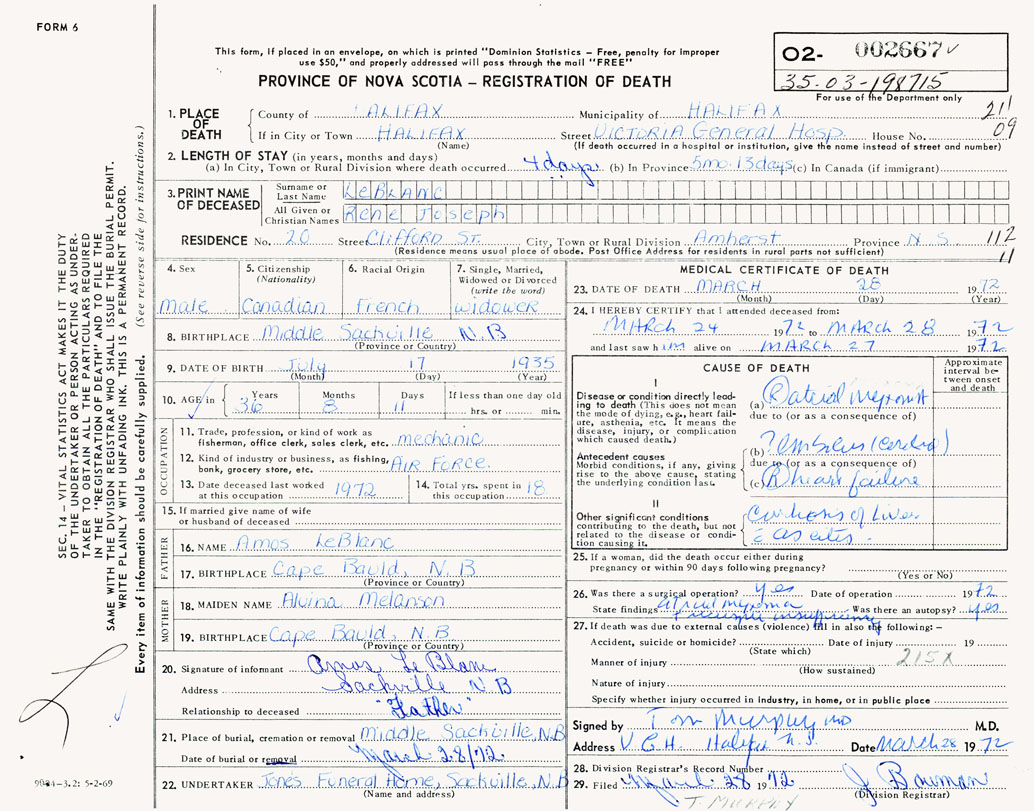 FORM 6
This form, if placed in an envelope, on which is printed "Dominion Statistics – Free, penalty for improper
use $50," and properly addressed will pass through the mail "FREE"
PROVINCE OF NOVA SCOTIA – REGISTRATION OF DEATH
02- 002667
35-03-198715
For use of the Department only
211
09
1. PLACE OF DEATH
County of HALIFAX Municipality of HALIFAX
If in City or Town HALIFAX Street VICTORIA General Hosp. House No.
(Name) (If death occurred in a hospital or institution, give the name instead of street and number)
2. LENGTH OF STAY (in years, months and days)
(a) In City, Town or Rural Division where death occurred 4 days (b) In Province 5mo. 13days (c) In Canada (if immigrant)
3. PRINT NAME OF DECEASED
Surname or Last Name LeBLANC
All Given or Christian Names Rene Joseph
RESIDENCE No. 20 Street Clifford St. City, Town or Rural Division Amherst Province N.S. 112
(Residence means usual place of abode. Post Office Address for residents in rural parts not sufficient) 11
4. Sex male
5. Citizenship (Nationality) Canadian
6. Racial Origin French
7. Single, Married, Widowed or Divorced (write the word) widower
8. BIRTHPLACE Middle Sackville N.B
(Province or Country)
9. DATE OF BIRTH July 17 1935
(Month) (Day) (Year)
10. AGE in Years 36 Months 8 Days 11 If less than one day old hrs. or min.
OCCUPATION
11. Trade, profession, or kind of work as
fisherman, office clerk, sales clerk, etc. mechanic
12. Kind of industry or business, as fishing,
bank, grocery store, etc. AIR FORCE.
13. Date deceased last worked at this occupation 1972
14. Total yrs. spent in this occupation 18
15. If married give name of wife
or husband of deceased
FATHER
16. NAME Amos LeBlanc
17. BIRTHPLACE Cape Bauld, N.B
(Province or Country)
MOTHER
18. MAIDEN NAME Alvina Melanson
19. BIRTHPLACE Cape Bauld, N.B
(Province or Country)
20. Signature of informant Amos Le Blanc
Address Sackville N B
Relationship to deceased "Father"
21. Place of burial, cremation or removal Middle Sackville, N.B
Date of burial or removal March 28/72.
22. UNDERTAKER Jones Funeral Home, Sackville, N.B
(Name and address)
MEDICAL CERTIFICATE OF DEATH
23. DATE OF DEATH MARCH 28 1972
(Month) (Day) (Year)
24. I HEREBY CERTIFY that I attended deceased from:
MARCH 24 1972 to MARCH 28 1972
and last saw him alive on MARCH 27 1972
CAUSE OF DEATH
Approximate interval between onset and death
I
Disease or condition directly leading to death (This does not mean the mode of dying, e.g., heart failure, asthenia, etc. It means the disease, injury, or complication which caused death.)
(a) R atrial
due to (or as a consequence of)
Antecedent causes
Morbid conditions, if any, giving rise to the above cause, stating the underlying condition last.
(b) ? Embolus (cerebral)
due to (or as a consequence of)
(c) R heart failure
II
Other significant conditions contributing to the death, but not related to the disease or condition causing it.
Cirrhosis of Liver
c ascites.
25. If a woman, did the death occur either during
pregnancy or within 90 days following pregnancy?
(Yes or No)
26. Was there a surgical operation? yes Date of operation 1972
State findings atrial myxoma Was there an autopsy? yes
insufficiency
27. If death was due to external causes (violence) fill in also the following: –
Accident, suicide or homicide? Date of injury 19
(State which) 215X
Manner of injury
(How sustained)
Nature of injury
Specify whether injury occurred in industry, in home, or in public place
Signed by T M Murphy MD M.D.
Address V.G.H. Halifax N.S. Date March 28 1972
28. Division Registrar's Record Number
29. Filed March 28 1972 J. Bowman
(Division Registrar)
T. MURPHY
SEC. 14 – VITAL STATISTICS ACT MAKES IT THE DUTY
OF THE UNDERTAKER OR PERSON ACTING AS UNDER-
TAKER TO OBTAIN ALL THE PARTICULARS REQUIRED
IN THE "REGISTRATION OF DEATH" AND TO FILE THE
SAME WITH THE DIVISION REGISTRAR WHO SHALL ISSUE THE BURIAL PERMIT.
WRITE PLAINLY WITH UNFADING INK. THIS IS A PERMANENT RECORD.
Every item of information should be carefully supplied. (See reverse side for instructions.)
9924-3.2: 5-2-69